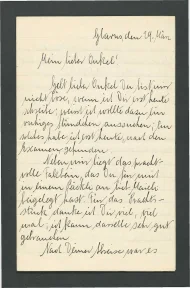 Glarus, den 29. März
Mein lieber Onkel!
Gelt liebr Onkel Du bist mir
nicht böse, wenn ich Dir erst heute
schreibe; zuerst ich wollte dazu ein
ruhiges Stündchen aussuchen, ein
solches habe ich erst heute, nach den
Examen gefunden.
Neben mir liegt das pracht-
volle Falzbein, das Du fein mit
in einem Päckli an
beigelegt hast. Für das Pracht-
stück danke ich Dir viel, viel
mal, ich kann dasselbe sehr gut
gebrauchen.
Nach Deiner Abreise war es